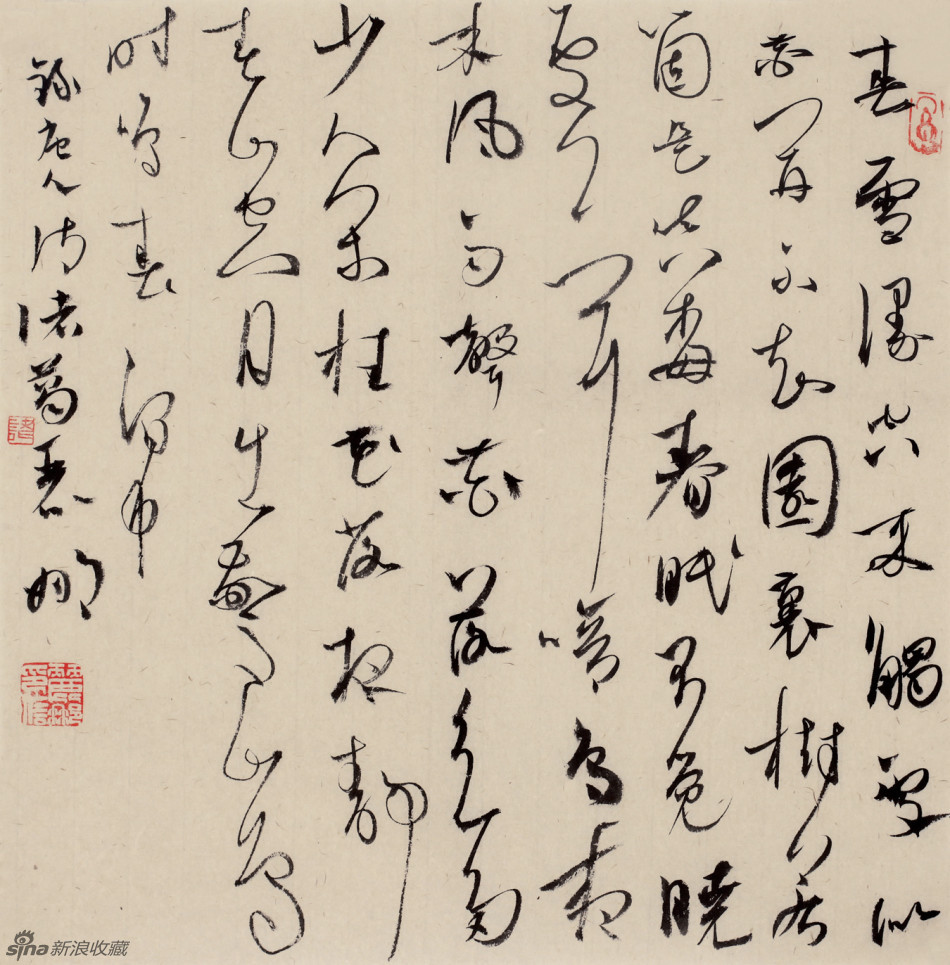 春雪滿空來觸處似
花開不知園裏樹若
箇是真梅春眠不覺曉
處處聞啼鳥夜
來風雨聲花落知多
少人閑桂花落夜靜
春山空月出驚山鳥
時鳴春澗中
錄唐人詩諸葛麗娜
sina新浪收藏